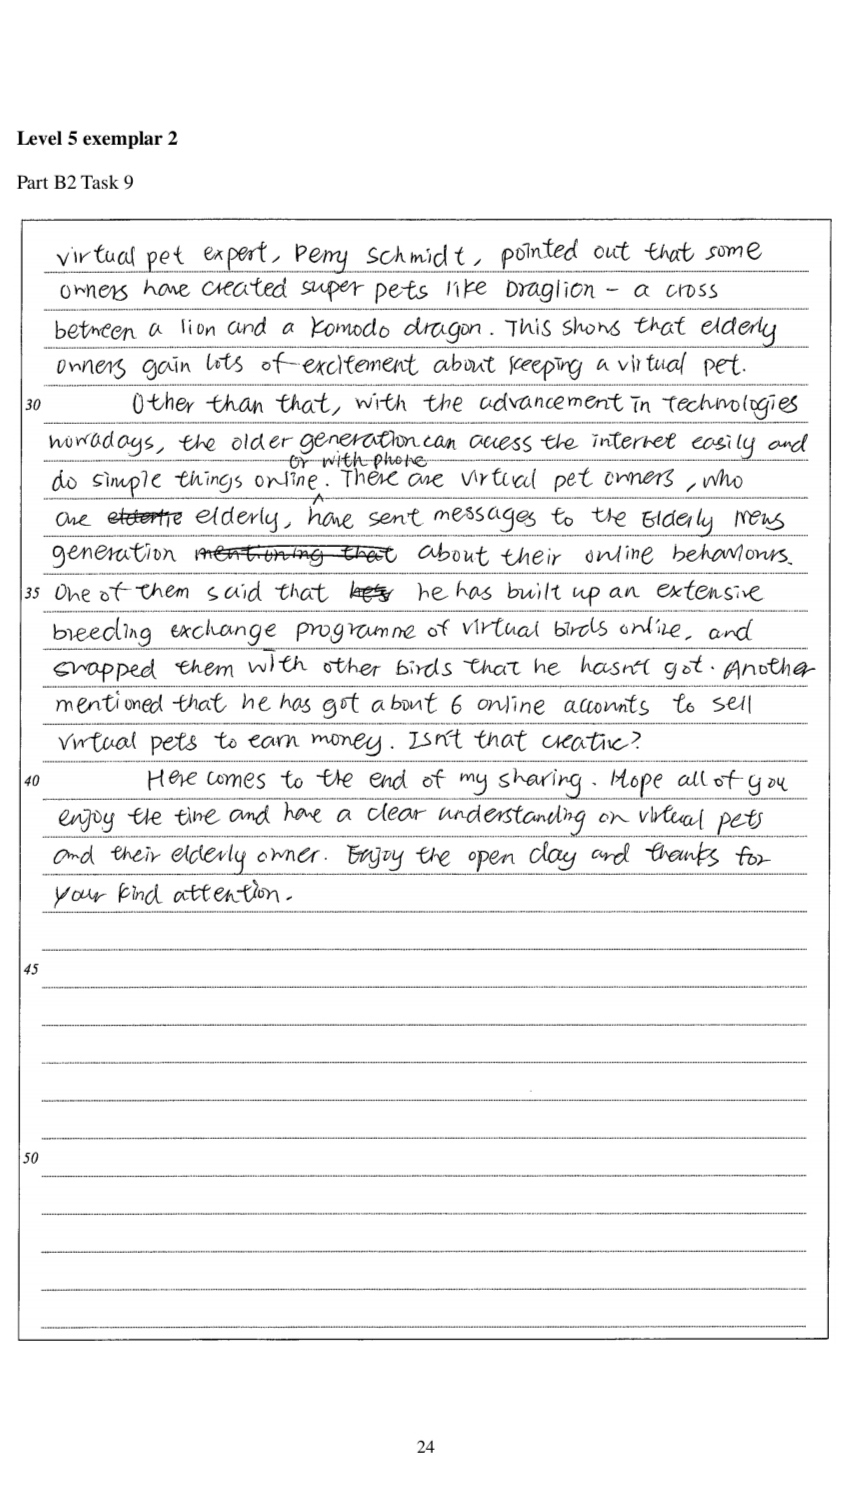 Level 5 exemplar 2
Part B2 Task 9
virtual pet expert, Perry Schmidt, pointed out that some
owners have created super pets like Draglion - a cross
between a lion and a Komodo dragon. This shows that elderly
owners gain lots of excitement about keeping a virtual pet.
30 Other than that, with the advancement in technologies
nowadays, the older generation can access the internet easily and
or with phone
do simple things online. There are virtual pet owners, who
are elderly, have sent messages to the Elderly News
generation mentioning that about their online behaviours.
35 One of them said that he has built up an extensive
breeding exchange programme of virtual birds online, and
swapped them with other birds that he hasn't got. Another
mentioned that he has got about 6 online accounts to sell
virtual pets to earn money. Isn't that creative?
40 Here comes to the end of my sharing. Hope all of you
enjoy the time and have a clear understanding on virtual pets
and their elderly owner. Enjoy the open day and thanks for
your kind attention.
45
50
24